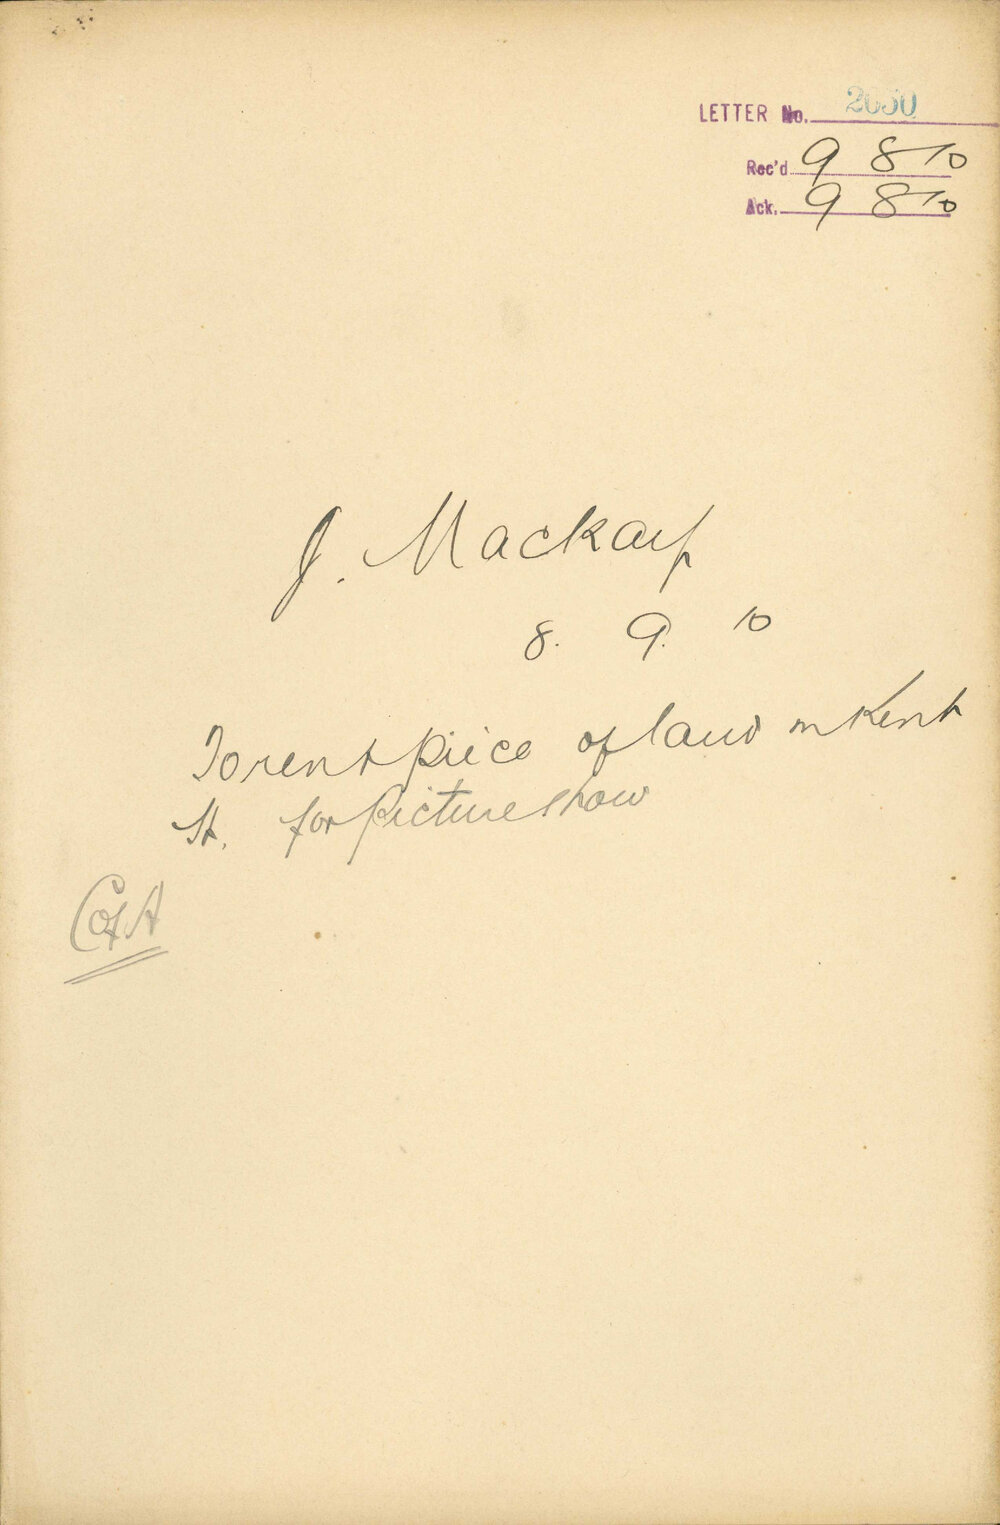 LETTER No. 2050
Rec'd 9 8/10
Ack. 9 8/10
J. Mackay
8. 9. 10
To rent piece of land in Kent
St. for picture show
C of A